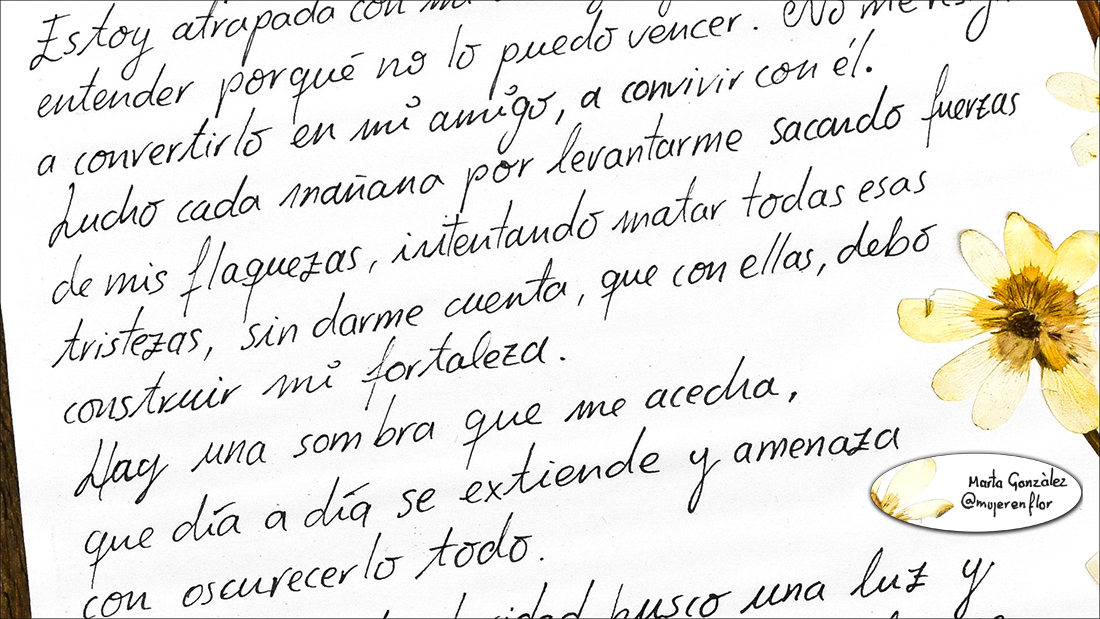 Estoy atrapada con
entender porqué no lo puedo vencer. No me
a convertirlo en mi amigo, a convivir con él.
Lucho cada mañana por levantarme sacando fuerzas
de mis flaquezas, intentando matar todas esas
tristezas, sin darme cuenta, que con ellas, debo
construir mi fortaleza.
Hay una sombra que me acecha,
que día a día se extiende y amenaza
con oscurecerlo todo.
busco una luz y
Marta Gonzàlez
@mujerenflor